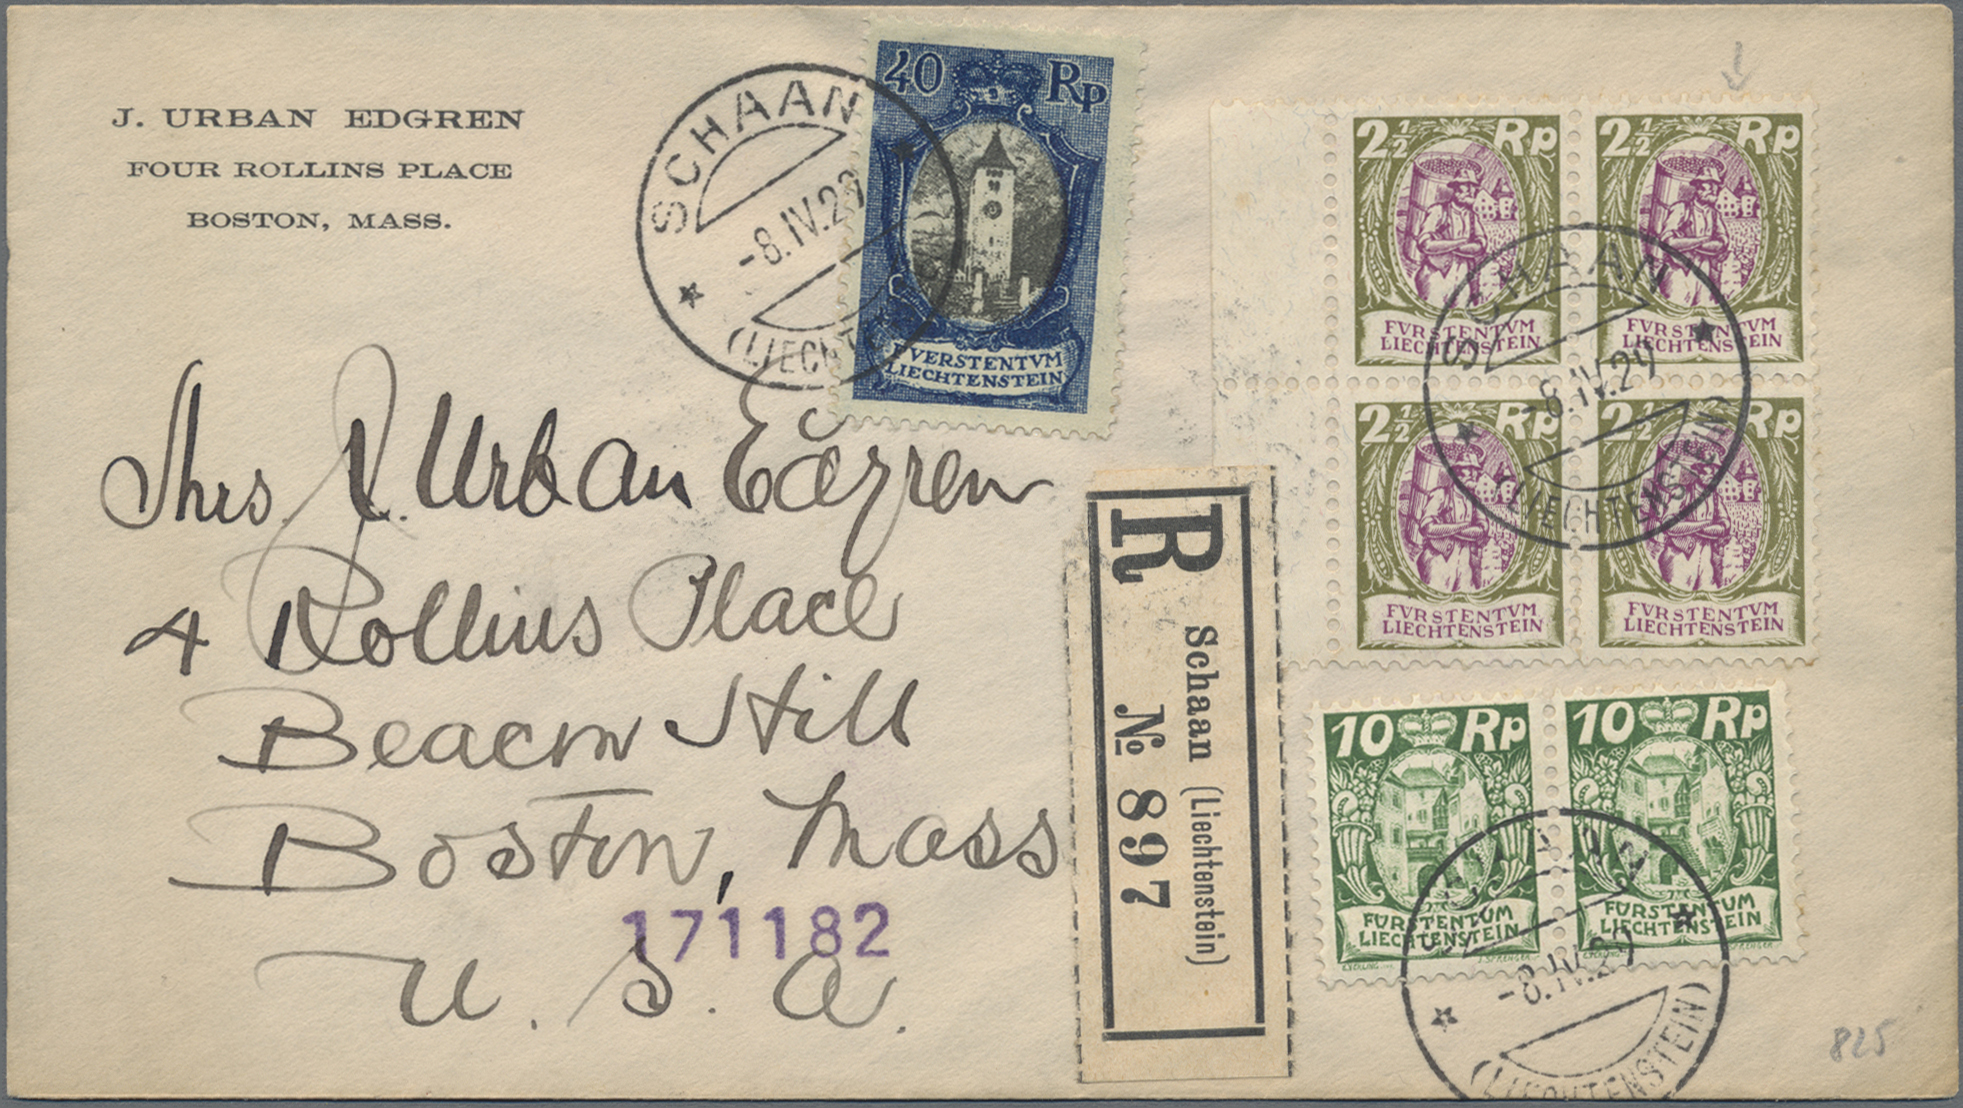 J. URBAN EDGREN
FOUR ROLLINS PLACE
BOSTON, MASS.
40 Rp
FVERSTENTVM
LIECHTENSTEIN
SCHAAN
-8.IV.29
(LIECHTE
2½ Rp
FVRSTENTVM
LIECHTENSTEIN
2½ Rp
FVRSTENTVM
LIECHTENSTEIN
2½ Rp
FVRSTENTVM
LIECHTENSTEIN
2½ Rp
FVRSTENTVM
LIECHTENSTEIN
SCHAAN
-8.IV.29
(LIECHTENSTEIN)
Mrs J. Urban Edgren
4 Rollins Place
Beacon Hill
Boston, Mass
U. S. A.
171182
R
Schaan (Liechtenstein)
№ 897
10 Rp
FÜRSTENTUM
LIECHTENSTEIN
10 Rp
FÜRSTENTUM
LIECHTENSTEIN
J. SPRENGER
-8.IV.29
(LIECHTENSTEIN)
825